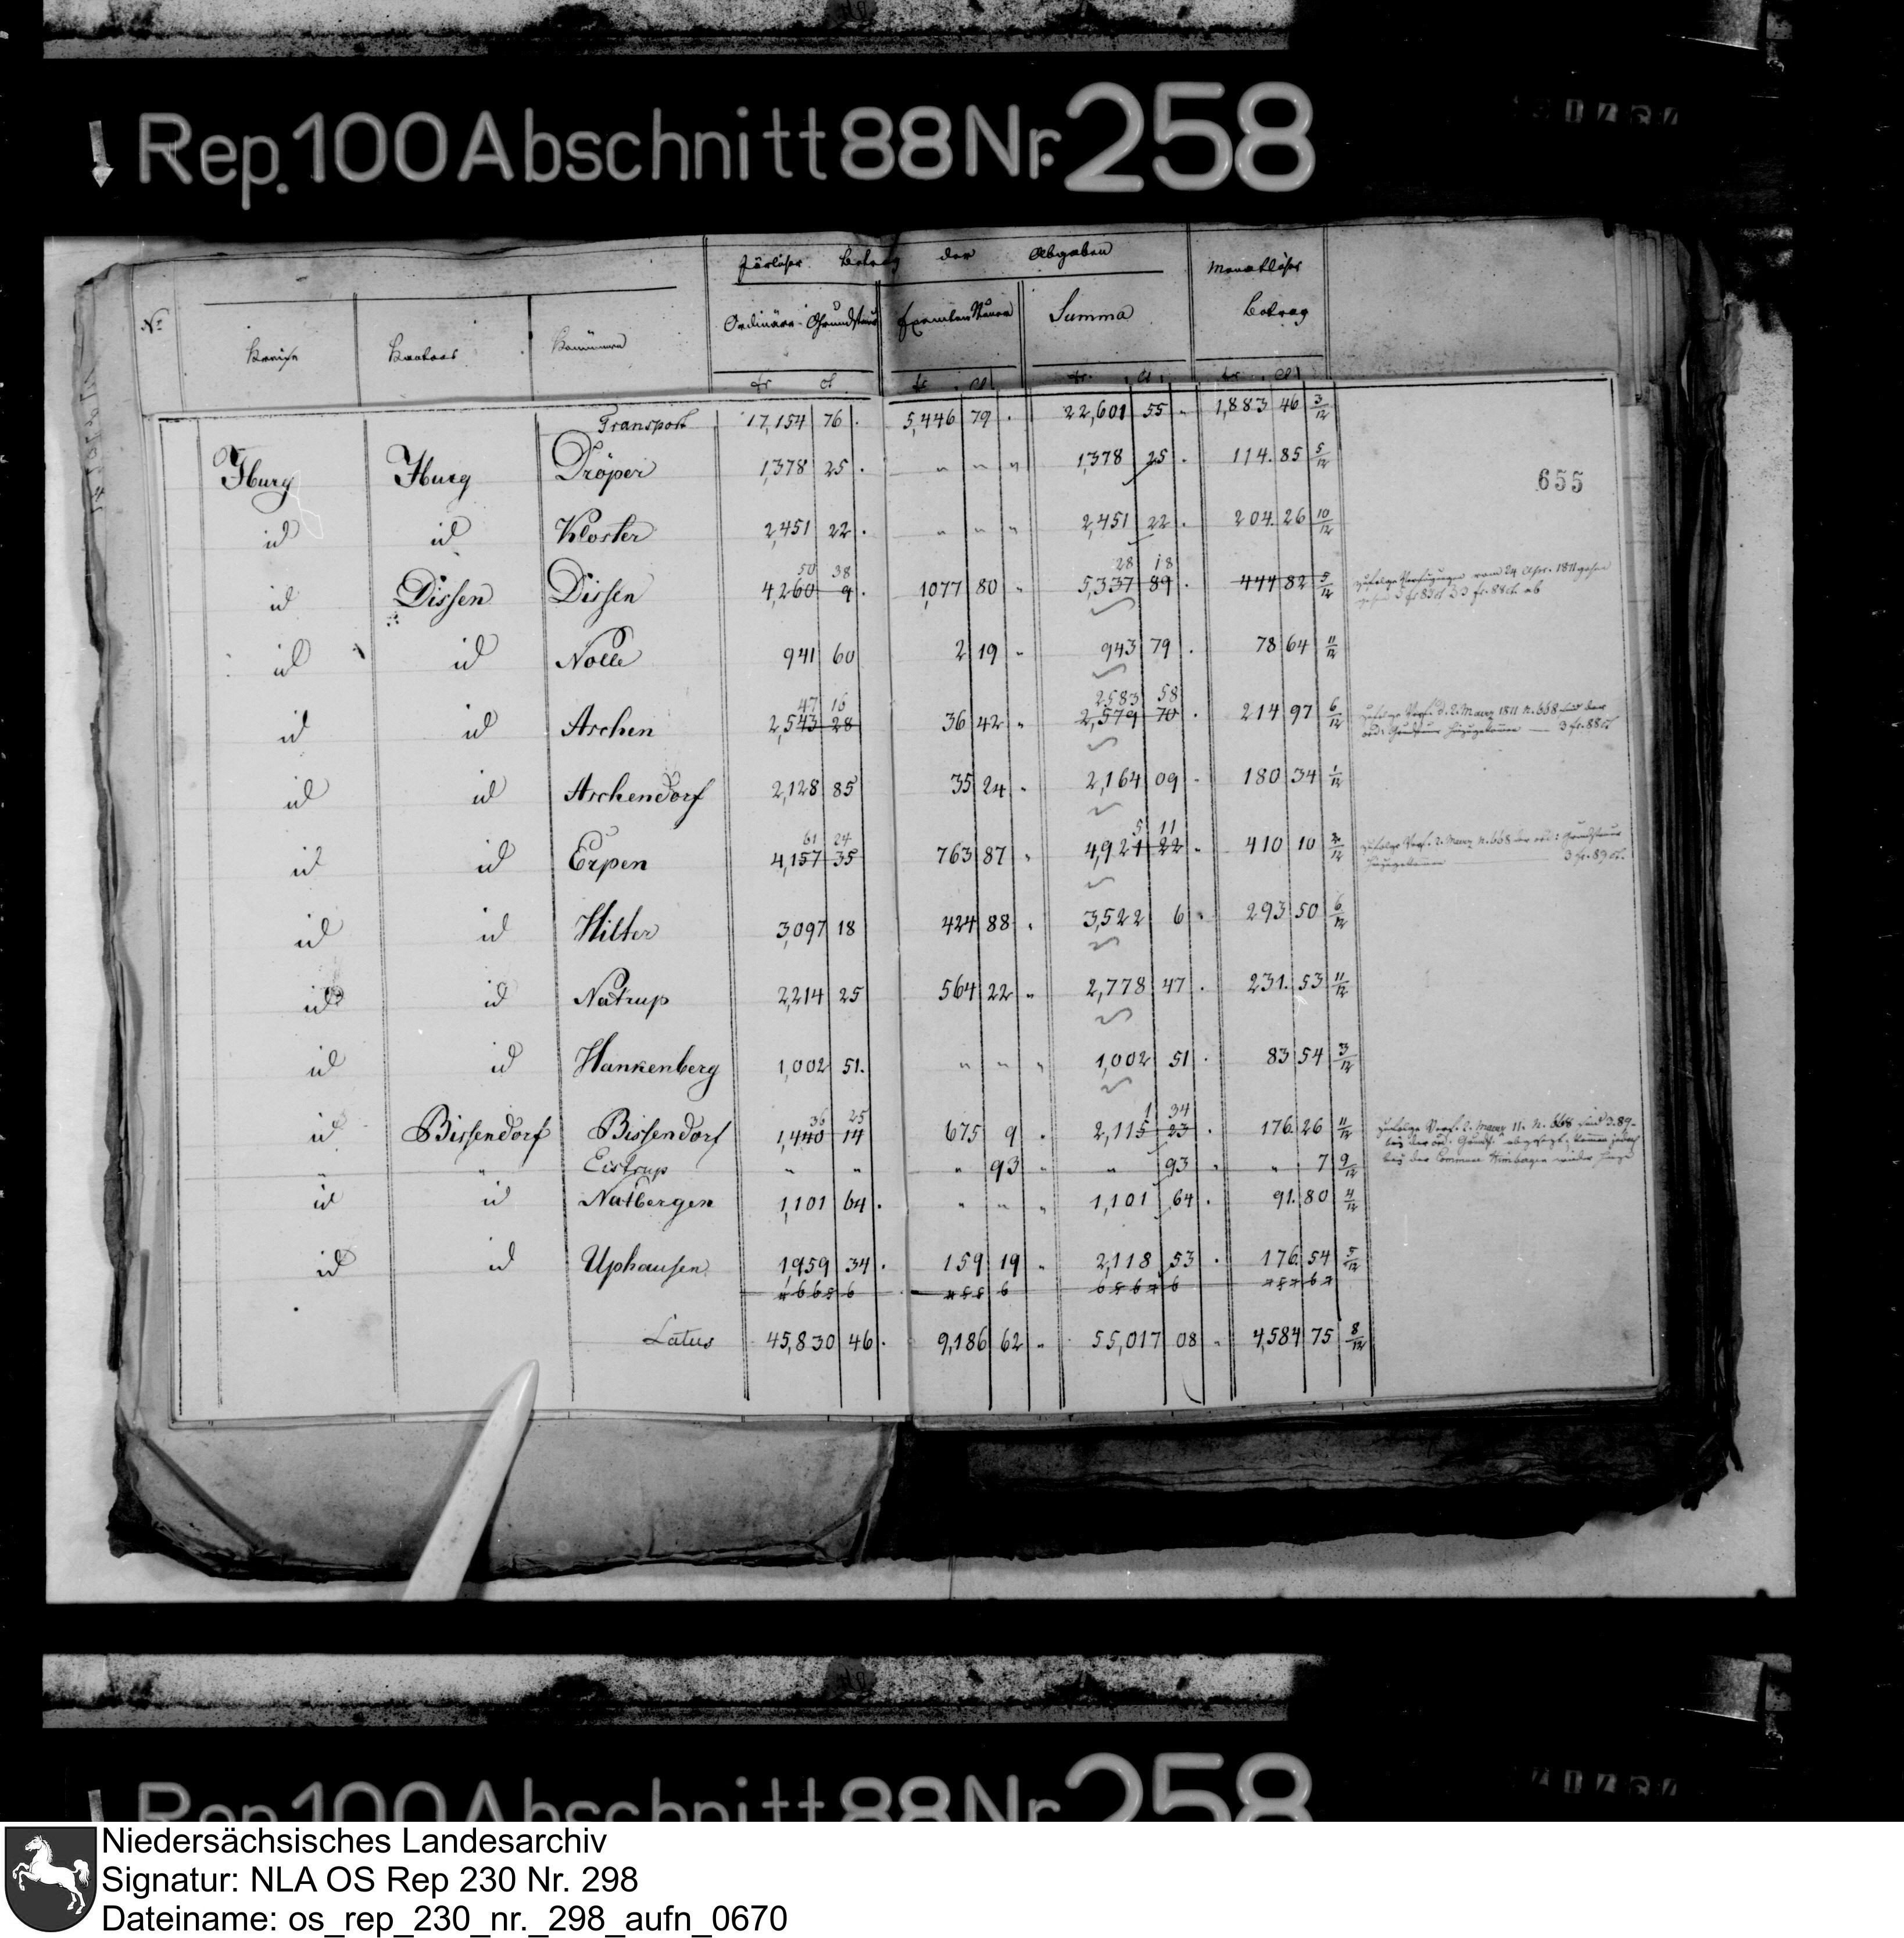 Rep. 100 Abschnitt 88 Nr. 258
Jährlicher Betrag der Abgaben Monatlicher
No Kreise Kantons Kommunen Ordinäre Grundsteuer Exemten Steuer Summa Betrag
fr ct fr ct fr. ct. fr. ct
Transport 17,154 76. 5,446 79. 22,601 55 " 1,883 46 3/12
Iburg Iburg Dröper 1,378 25. " " " 1,378 25. 114. 85 5/12
655
id id Kloster 2,451 22. " " " 2,451 22. 204. 26 10/12
50 38 28 18
id Dissen Dissen 4,260 9. 1,077 80 " 5,337 89. 444 82 5/12 zufolge Verfügung vom 24 Apr. 1811
id id Nolle 941 60 2 19 " 943 79. 78 64 11/12
47 16 2583 58
id id Aschen 2,543 28 36 42 " 2,579 70. 214 97 6/12 zufolge Verf. d. 2. März 1811 N. 668 sind der
ord. Grundsteuer hinzugekommen — 3 fr. 88 ct
id id Aschendorf 2,128 85 35 24 " 2,164 09 " 180 34 1/12
61 24 5 11
id id Erpen 4,157 35 763 87 " 4,921 22 " 410 10 2/12 zufolge Verf. 2. März N. 668 der ord: Grundsteuer
hinzugekommen 3 fr. 89 ct.
id id Hilter 3,097 18 424 88 " 3,522 6 " 293 50 6/12
id id Natrup 2,214 25 564 22 " 2,778 47. 231. 53 11/12
id id Hankenberg 1,002 51. " " " 1,002 51. 83 54 3/12
36 25 1 34
id Bissendorf Bissendorf 1,440 14 675 9. 2,115 23. 176. 26 11/12 zufolge Verf. 2. März 11. N. 668 sind 3.89
" " Eistrup " " " 93 " " 93 " " 7 9/12 bei der Commune Himbergen wieder
id id Natbergen 1,101 64. " " " 1,101 64. 91. 80 4/12
id id Uphausen 1,959 34. 159 19 " 2,118 53. 176. 54 5/12
Latus 45,830 46. 9,186 62 " 55,017 08 " 4,584 75 8/12
Rep. 100 Abschnitt 88 Nr. 258
Niedersächsisches Landesarchiv
Signatur: NLA OS Rep 230 Nr. 298
Dateiname: os_rep_230_nr._298_aufn_0670